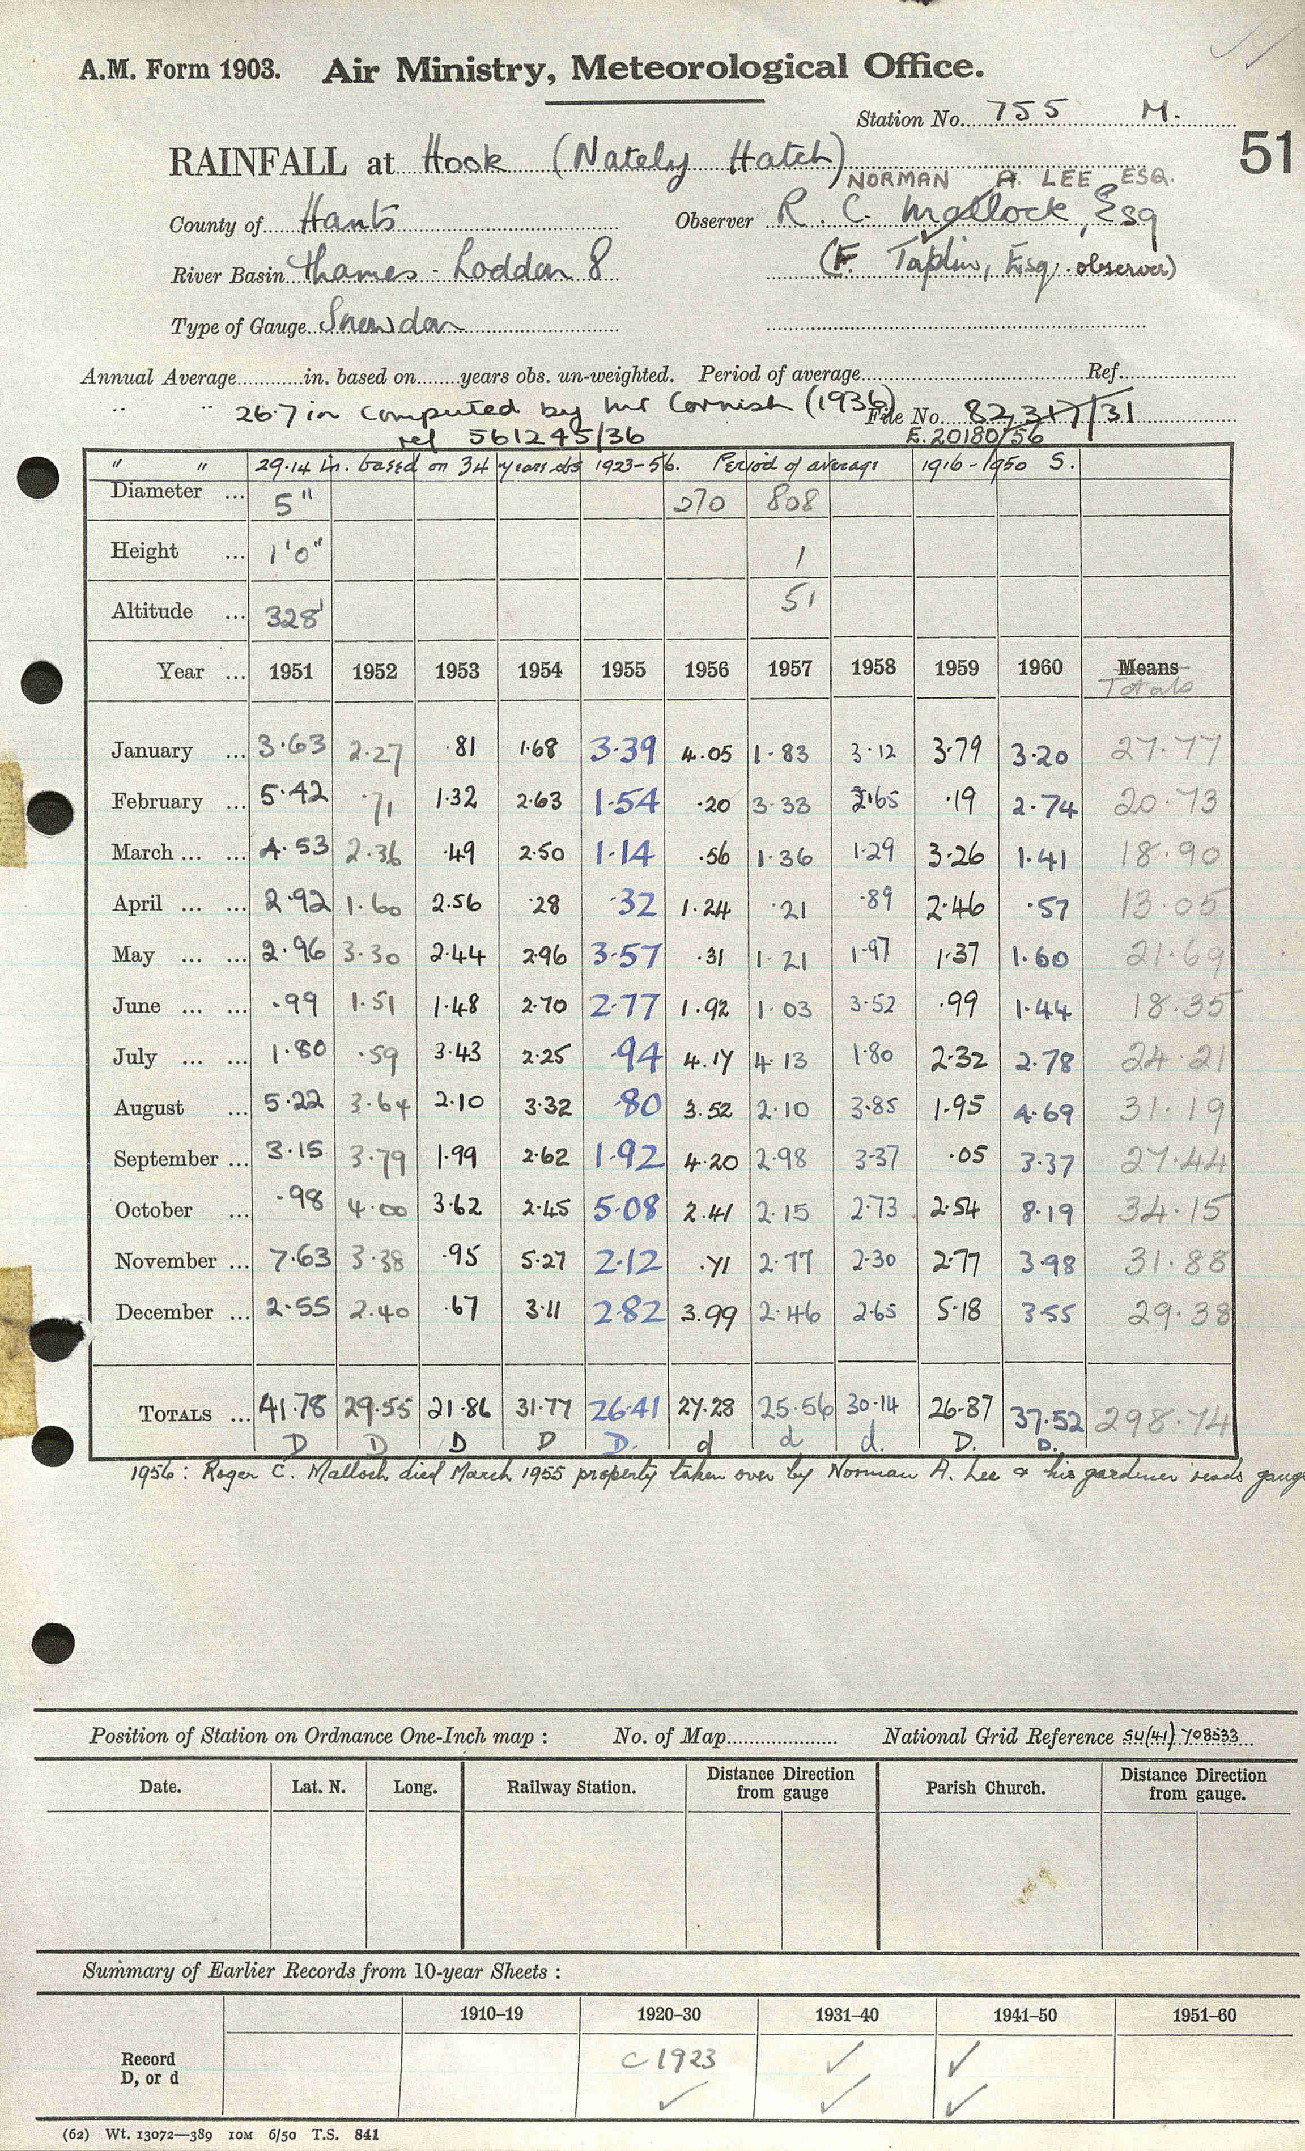 A.M. Form 1903. Air Ministry, Meteorological Office.
Station No. 755 M.
51
RAINFALL at Hook (Nately Hatch)
NORMAN A. LEE ESQ.
County of Hants Observer R. C. Mallock, Esq
River Basin Thames - Loddon 8 (F. Taplin, Esq. observer)
Type of Gauge Snowdon
Annual Average in. based on years obs. un-weighted. Period of average Ref.
" " 26.7 in computed by Mr Cornish (1936) File No. 82317/31
ref 561245/36 E.20180/56
" " 29.14 in. based on 34 years obs 1923-56. Period of average 1916-1950 S.
Diameter ... 5" 270 808
Height ... 1'0" 1
Altitude ... 328' 51
Year ... 1951 1952 1953 1954 1955 1956 1957 1958 1959 1960 Means
Totals
January ... 3.63 2.27 .81 1.68 3.39 4.05 1.83 3.12 3.79 3.20 27.77
February ... 5.42 .71 1.32 2.63 1.54 .20 3.33 2.65 .19 2.74 20.73
March ... ... 4.53 2.36 .49 2.50 1.14 .56 1.36 1.29 3.26 1.41 18.90
April ... ... 2.92 1.60 2.56 .28 .32 1.24 .21 .89 2.46 .57 13.05
May ... ... 2.96 3.30 2.44 2.96 3.57 .31 1.21 1.97 1.37 1.60 21.69
June ... ... .99 1.51 1.48 2.70 2.77 1.92 1.03 3.52 .99 1.44 18.35
July ... ... 1.80 .59 3.43 2.25 .94 4.17 4.13 1.80 2.32 2.78 24.21
August ... 5.22 3.64 2.10 3.32 .80 3.52 2.10 3.85 1.95 4.69 31.19
September ... 3.15 3.79 1.99 2.62 1.92 4.20 2.98 3.37 .05 3.37 27.44
October ... .98 4.00 3.62 2.45 5.08 2.41 2.15 2.73 2.54 8.19 34.15
November ... 7.63 3.38 .95 5.27 2.12 .71 2.77 2.30 2.77 3.98 31.88
December ... 2.55 2.40 .67 3.11 2.82 3.99 2.46 2.65 5.18 3.55 29.38
TOTALS ... 41.78 29.55 21.86 31.77 26.41 27.28 25.56 30.14 26.87 37.52 298.74
D D D D D. d d d. D. D.
1956: Roger C. Mallock died March 1955 property taken over by Norman A. Lee & his gardener reads gauge
Position of Station on Ordnance One-Inch map : No. of Map National Grid Reference SU(41) 708533
Date. Lat. N. Long. Railway Station. Distance Direction from gauge Parish Church. Distance Direction from gauge.
Summary of Earlier Records from 10-year Sheets :
1910–19 1920–30 1931–40 1941–50 1951–60
Record D, or d c 1923 ✓ ✓
✓ ✓ ✓
(62) Wt. 13072—389 10M 6/50 T.S. 841